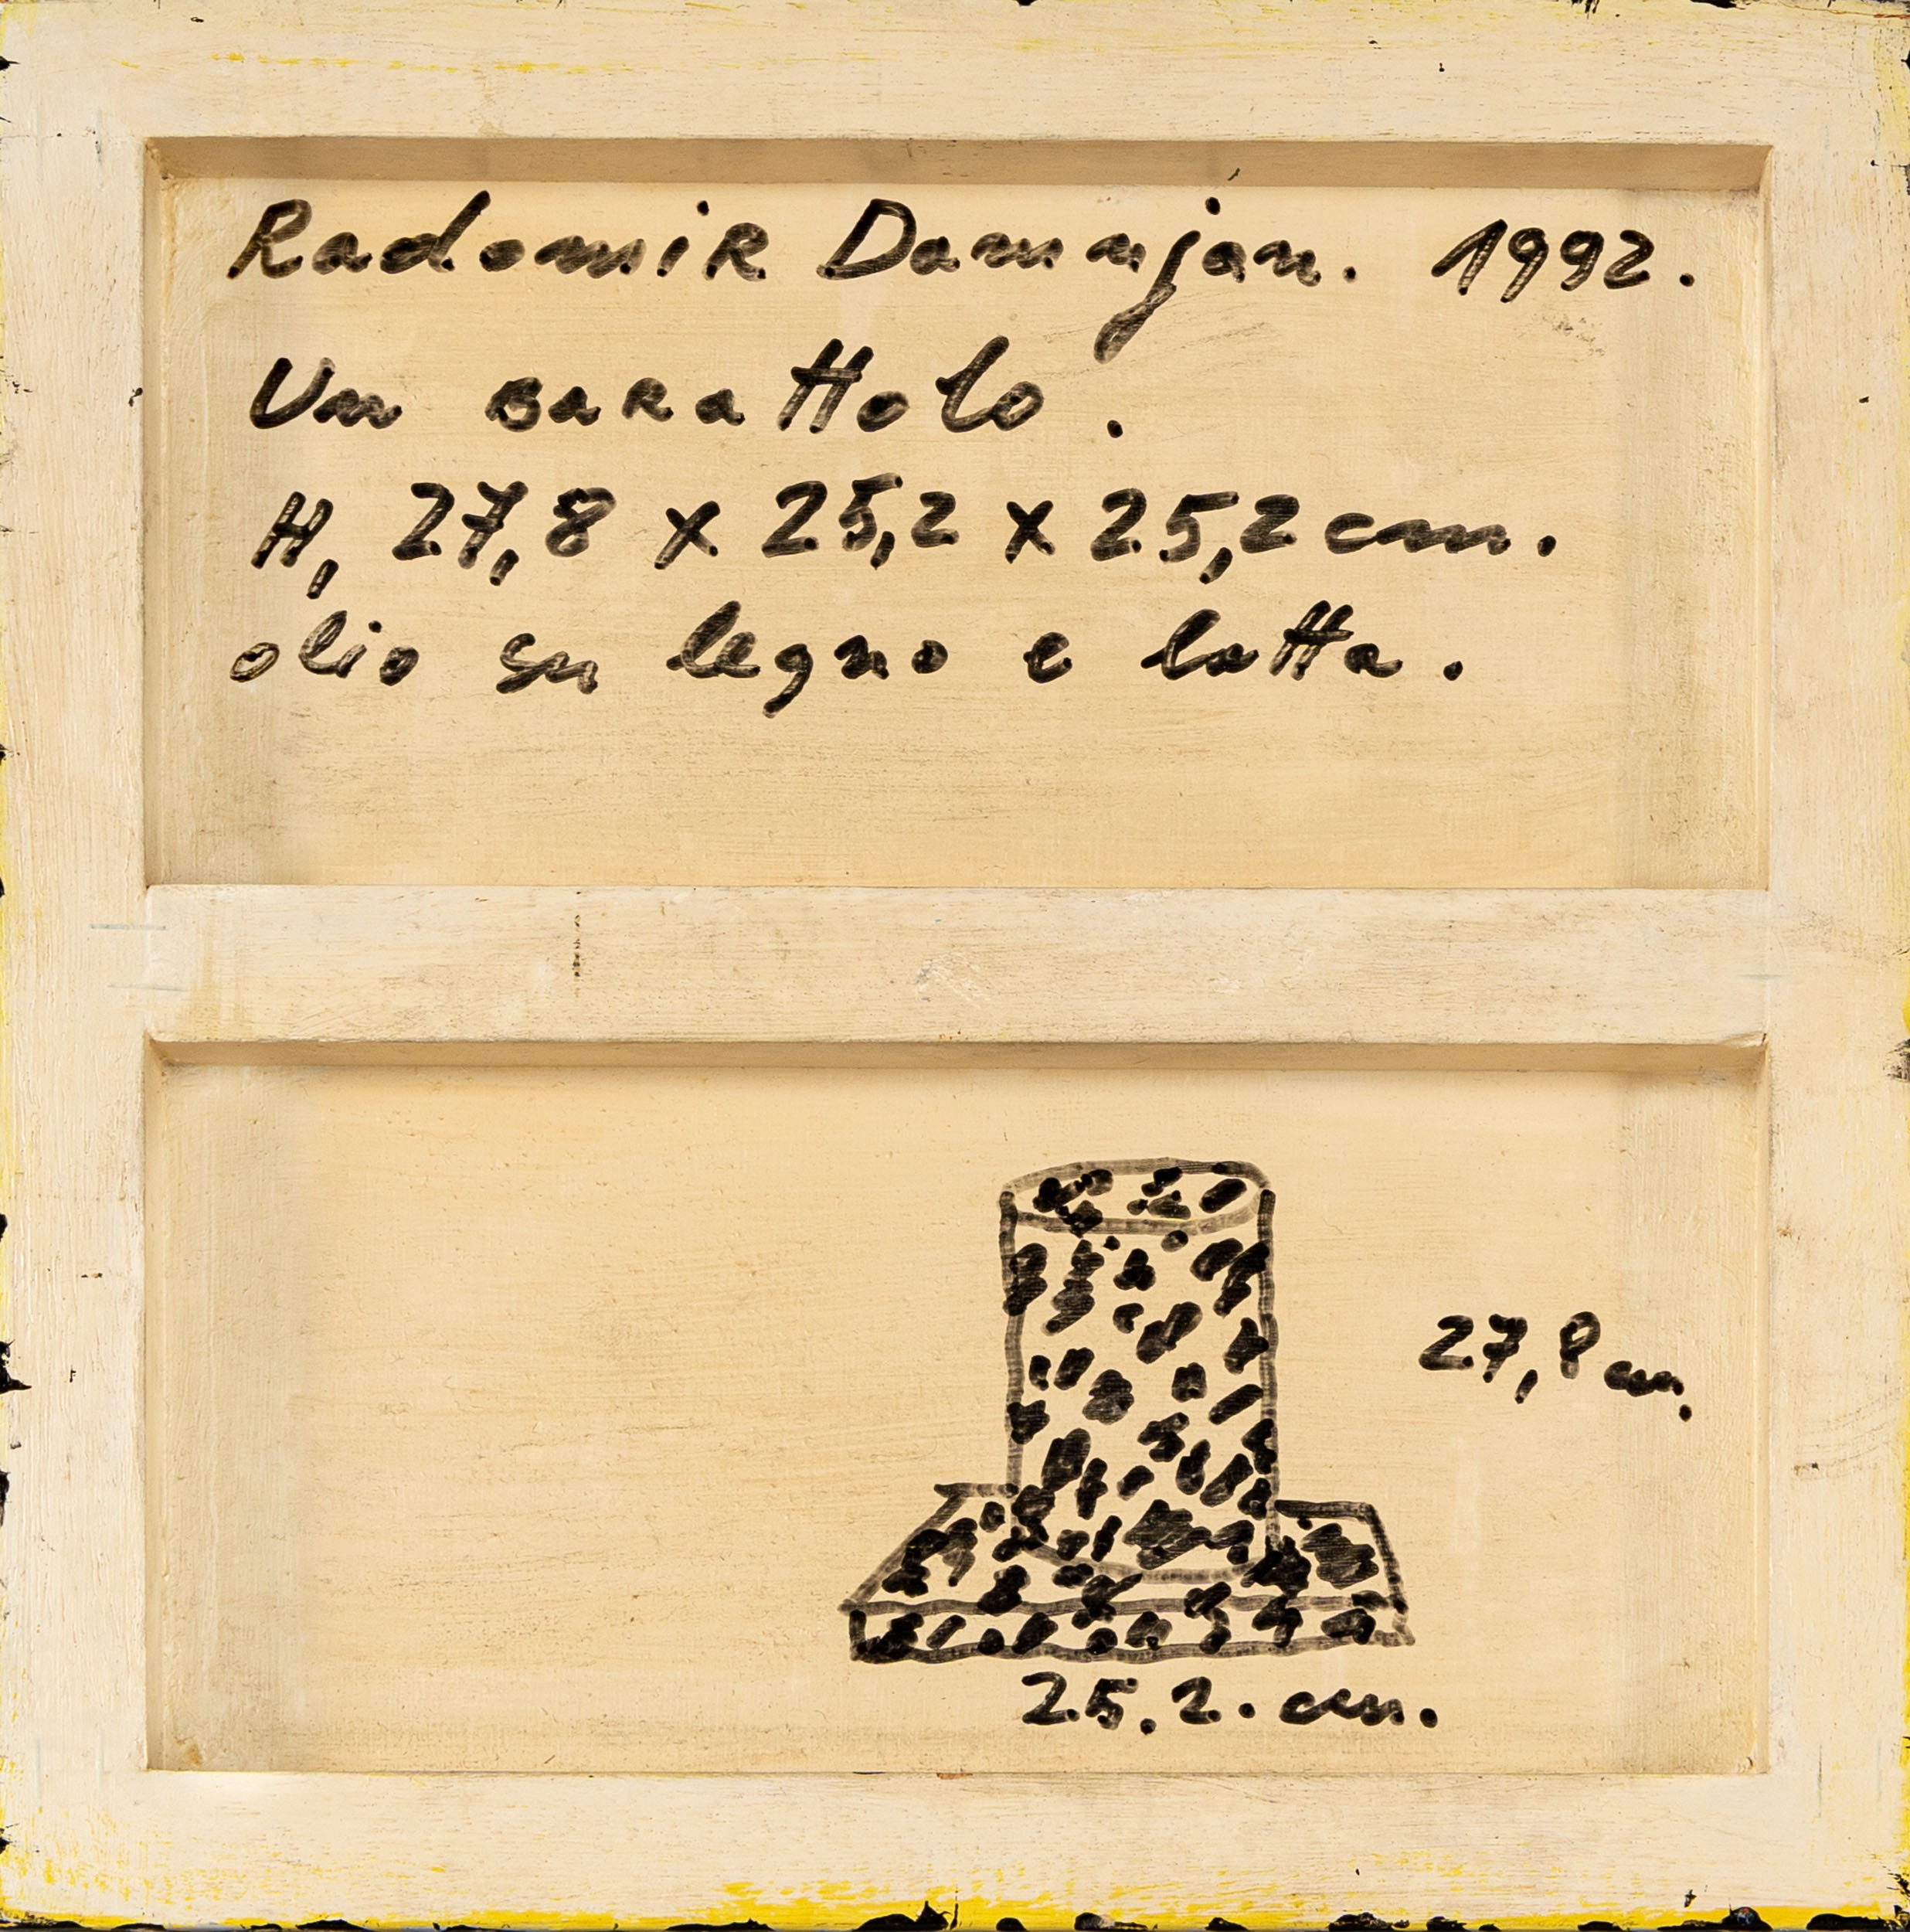 Radomir Damnjan. 1992.
Un barattolo.
H, 27,8 x 25,2 x 25,2 cm.
olio su legno e latta.
27,8 cm.
25.2. cm.